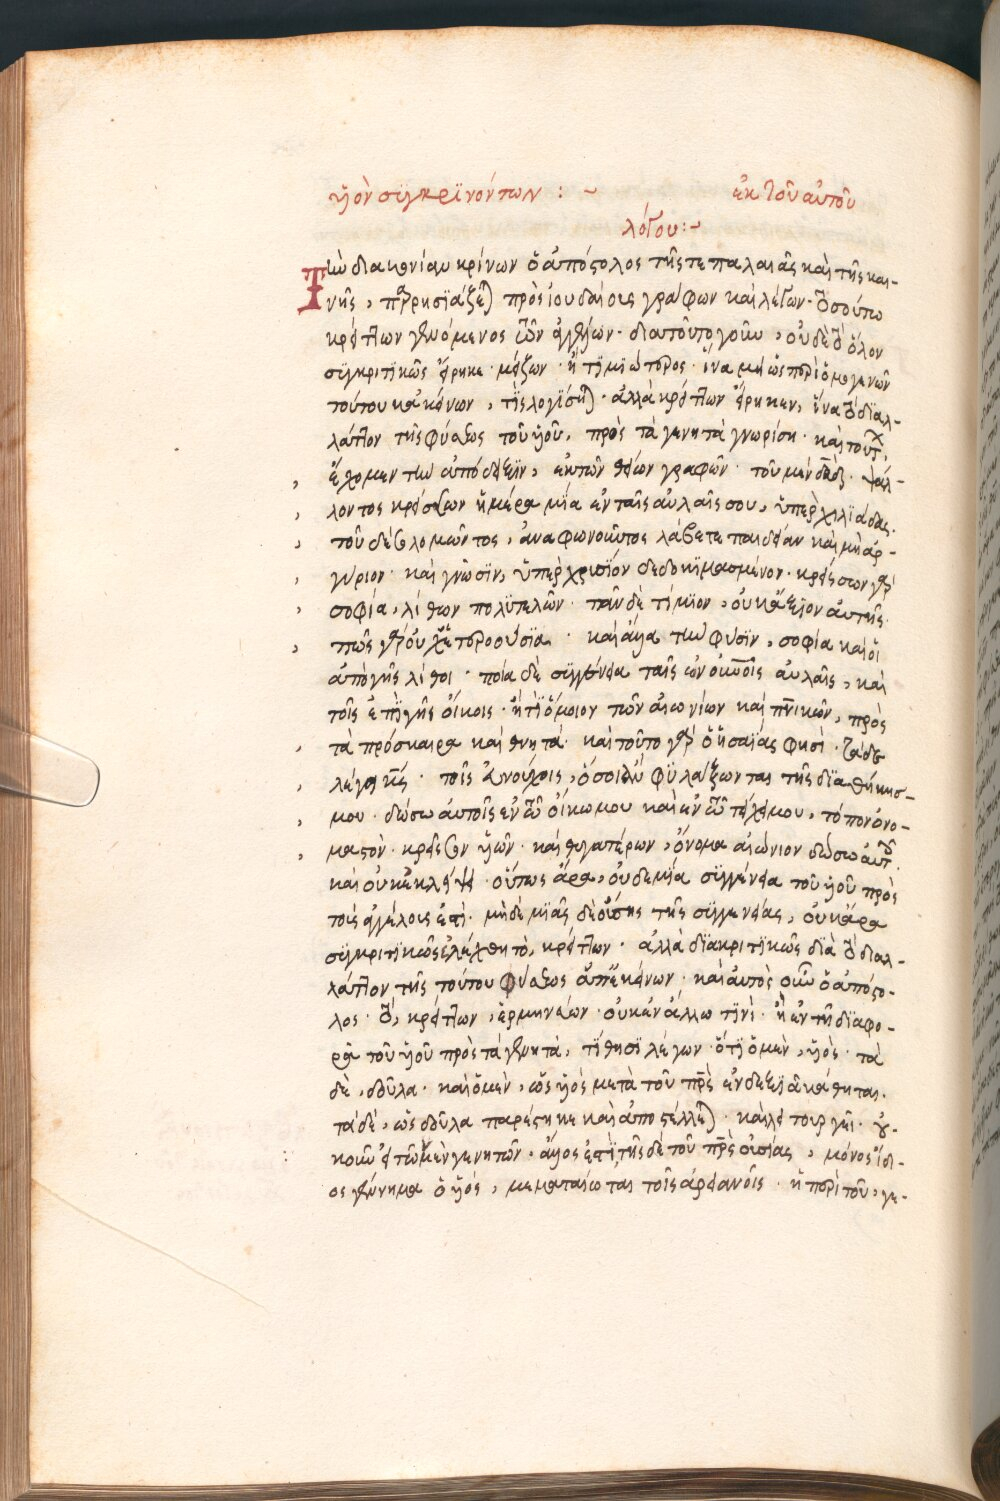 ὑϊὸν συγκρϊνόντων : ~ ἐκ τοῦ αὐτοῦ
λόγου :~
Τὴν διακονίαν κρίνων ὁ ἀπόστολος τῆς τε παλαιᾶς καὶ τῆς και-
νῆς, παρρησϊάζεται πρὸς ἰουδαίους γράφων καὶ λέγων· τοσούτω
κρείττων γενόμενος τῶν ἀγγέλων· διατοῦτο γοῦν, οὐδὲ τὸ ὅλον
συγκριτικῶς εἴρηκε· μείζων· ἢ τϊμϊώτερος· ἵνα μὴ ὡς περὶ ὁμογενῶν
τούτου κἀκείνων, τϊς λογίσηται· ἀλλὰ κρείττων εἴρηκεν, ἵνα τὸ διαλ-
λάττον τῆς φύσεως τοῦ ὑϊοῦ, πρὸς τὰ γενητὰ γνωρίση· καὶ τούτων
ἔχομεν τὴν ἀπόδειξϊν, ἐκ τῶν θείων γραφῶν· τοῦ μὲν δαδ· ψάλ-
λοντος κρείσσων ἡμέρα μϊα ἐν ταῖς αὐλαῖς σου, ὑπὲρ χιλϊάδας.
τοῦ δὲ σολομῶντος, ἀναφωνοῦντος λάβετε παιδείαν καὶ μὴ ἀρ-
γύριον· καὶ γνῶσϊν, ὑπὲρ χρυσϊον δεδοκϊμασμένον· κρείσσων γὰρ
σοφία, λίθων πολϋτελῶν· πᾶν δὲ τίμϊον, οὐκ ἄξιον αὐτῆς·
πῶς γὰρ οὐχ ἑτεροούσϊα· καὶ ἄλλα τὴν φύσϊν, σοφία καὶ οἱ
ἀπὸ γῆς λίθοι· ποία δὲ συγγένεια ταῖς ἐν οὐνοῖς αὐλαῖς, καὶ
τοῖς ἐπϊ γῆς οἴκοις· ἢ τϊ ὅμοιον τῶν αἰωνίων καὶ πνικῶν, πρὸς
τὰ πρόσκαιρα καὶ θνητά· καὶ τοῦτο γὰρ ὁ ἡσαΐας φησὶ· τάδε
λέγει κς· τοῖς εὐνούχοις, ὅσοι ἂν φϋλάξωνται τῆς διαθήκης
μου· δώσω αὐτοῖς ἐν τῶ οἴκω μου καὶ ἐν τῶ τείχει μου, τόπον ὀνο-
μαστὸν· κρείσσων ὑϊῶν· καὶ θυγατέρων, ὄνομα αἰώνιον δώσω αὐτοῖς·
καὶ οὐκ ἐκλείψει· οὕτως ἄρα, οὐδεμϊα συγγένεια τοῦ ὑϊοῦ πρὸς
τοὺς ἀγγέλους ἐστὶ· μὴ δὲ μιᾶς δὲ οὔσης τῆς συγγενείας, οὐκ ἄρα
συγκριτϊκῶς ἐλέχθη τὸ, κρείττων· ἀλλὰ δϊακριτϊκῶς διὰ τὸ διαλ-
λάττον τῆς τούτου φύσεως ἀπ' ἐκείνων· καὶ αὐτὸς οὖν ὁ ἀπόστο-
λος· τὸ, κρείττων, ἑρμηνεύων· οὐκ ἐν ἄλλω τϊνὶ· ἢ ἐν τῆ διαφο-
ρᾶ τοῦ ὑϊοῦ πρὸς τὰ γενητὰ, τϊθησϊ λέγων· ὅτϊ ὁ μὲν, ὑϊὸς· τὰ
δὲ, δοῦλα· καὶ ὁ μὲν, ὡς ὑϊὸς μετὰ τοῦ πρς ἐν δεξιᾶ κάθηται·
τὰ δὲ, ὡς δοῦλα παρέστηκε καὶ ἀποστέλλεται· καὶ λειτουργεῖ· οὐ-
κοῦν εἰ τῶν μὲν γενητῶν· ἄλλος ἐστὶ, τῆς δὲ τοῦ πρς οὐσίας, μόνος ἴδι-
ος γέννημα ὁ ὑϊός, μεματαίωται τοῖς ἀρειανοῖς· ἡ περὶ τοῦ, γε-